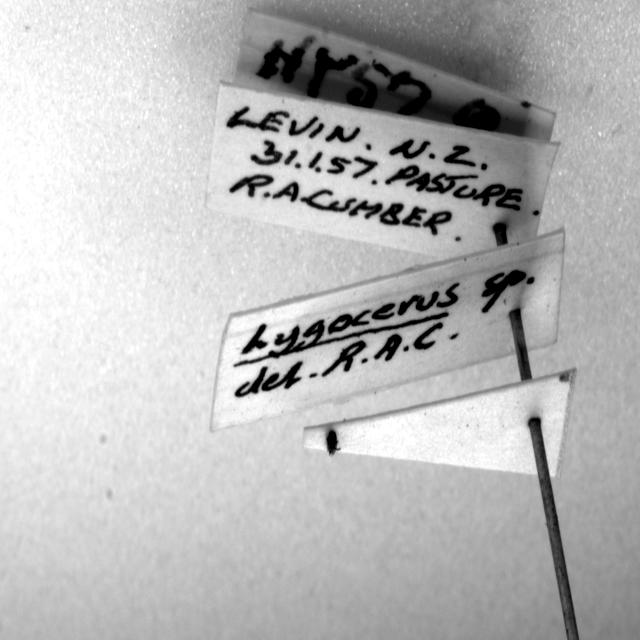 LEVIN. N.Z.
31.1.57. PASTURE
R.A CUMBER.
Lygocerus sp.
det. R.A.C.